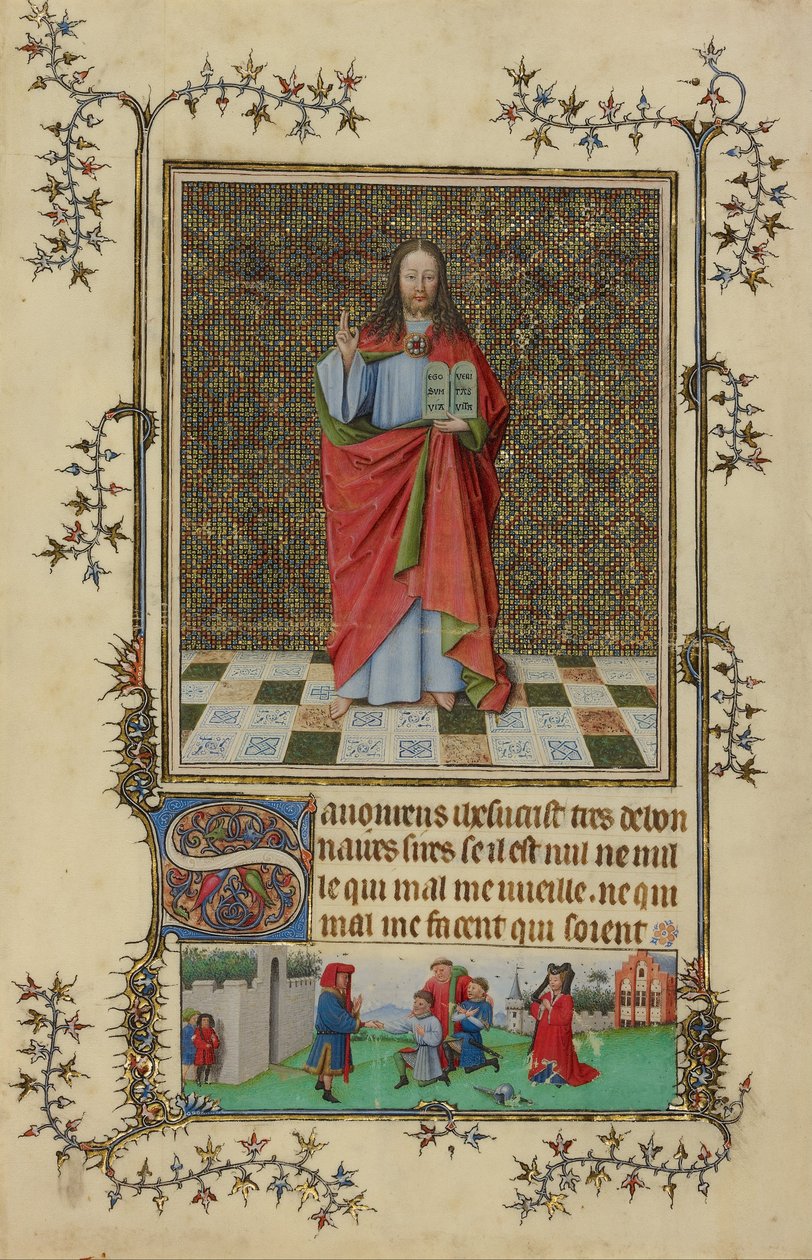 EGO
SVM
VIA
VERI
TAS
VITA
Sauoureus ihesucrist tres debon
naires sires se il est nul ne nul
le qui mal me uueille. ne qui
mal me facent qui soient